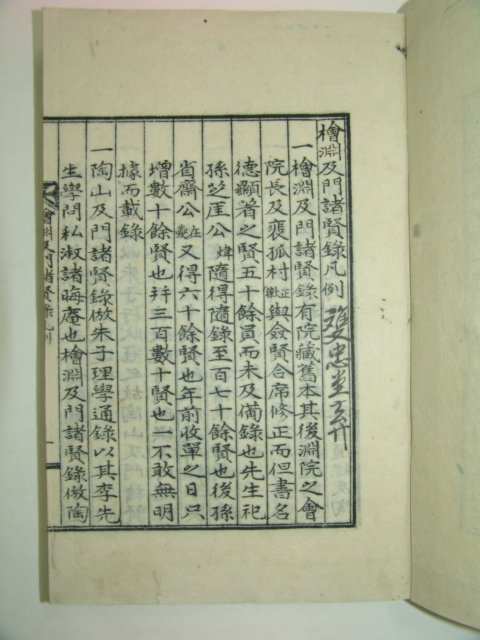 檜淵及門諸賢錄凡例
一檜淵及門諸賢錄有院藏舊本其後淵院之會
院長及裵孤村正徽與僉賢合席修正而但書名
德顯著之賢五十餘員而未及備錄也先生祀
孫芝厓公煒隨得隨錄至百七十餘賢也後孫
省齋公在夔又得六十餘賢也年前收單之日只
增數十餘賢也幷三百數十賢也 不敢無明
據而載錄
一陶山及門諸賢錄倣朱子理學通錄以其李先
生學問私淑諸晦庵也檜淵及門諸賢錄倣陶
檜淵及門諸賢錄凡例
一